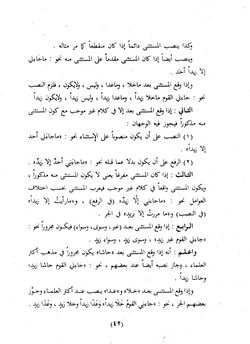 وكذا ينصب المستثنى دائماً إذا كان منقطعاً كما مر مثاله .
وينصب أيضاً إذا كان المستثنى مقدماً على المستثنى منه نحو : «ماجاءني
إلا زيداً أحد .
وإذا وقع المستثنى بعد ماخلا ، وماعدا ، وليس ، ولايكون ، فلزم النصب
نحو : جاءني القوم ماخلا زيداً ، وماعدا زيداً ، وليس زيداً ، ولايكون زيداً»
الثاني : وإذا وقع المستثنى بعد إلا في كلام غير موجب مع كون المستثنى
منه مذكوراً فيجوز فيه الوجهان :
(١) النصب على أن يكون منصوباً على الإستثناء نحو : «ماجاءني أحد
إلا زيداً» .
(٢) الرفع على أن يكون بدلا عما قبله نحو : «ماجاءني أحدٌ إلا زيدٌ» .
الثالث : إذا كان المستثنى مفرغاً يعنى لا يكون المستثنى منه مذكوراً ،
ويكون المستثنى واقعاً في كلام غير موجب فيعرب المستثنى بحسب اختلاف
العوامل نحو : «ماجاءني إلا زيدٌ» (في الرفع) ، و«مارأيتُ إلا زيداً»
(في النصب) و«ما مررتُ إلا بزيدٍ» في الجر .
الرابع : إذا وقع المستثنى بعد «غير ، وسوى ، وسواء» فيكون مجروراً نحو :
«جاءني القوم غير زيدٍ» ، وسوى زيدٍ ، وسواء زيدٍ .
واعلم : أنه إذا وقع المستثنى بعد «حاشا» يكون مجروراً في مذهب أكثر
العلماء ، وجاز نصبه أيضاً عند بعضهم ، نحو : «جاءني القوم حاشا زيدٍ
وحاشا زيداً» .
وإذا وقع المستثنى بعد «خلا» و«عدا» ينصب عند أكثر العلماء وجوّز
بعضهم الجر ، نحو : «جاءني القومُ خلا زيداً» وعَدَا زيداً وخلا زيدٍ ، وعَدَا زيدٍ .
(٤٢)